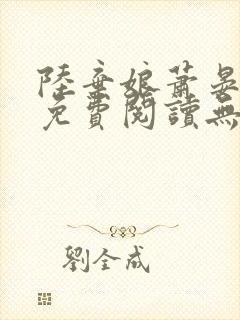 陸棄娘蕭晏
免費閱讀無
劉全成